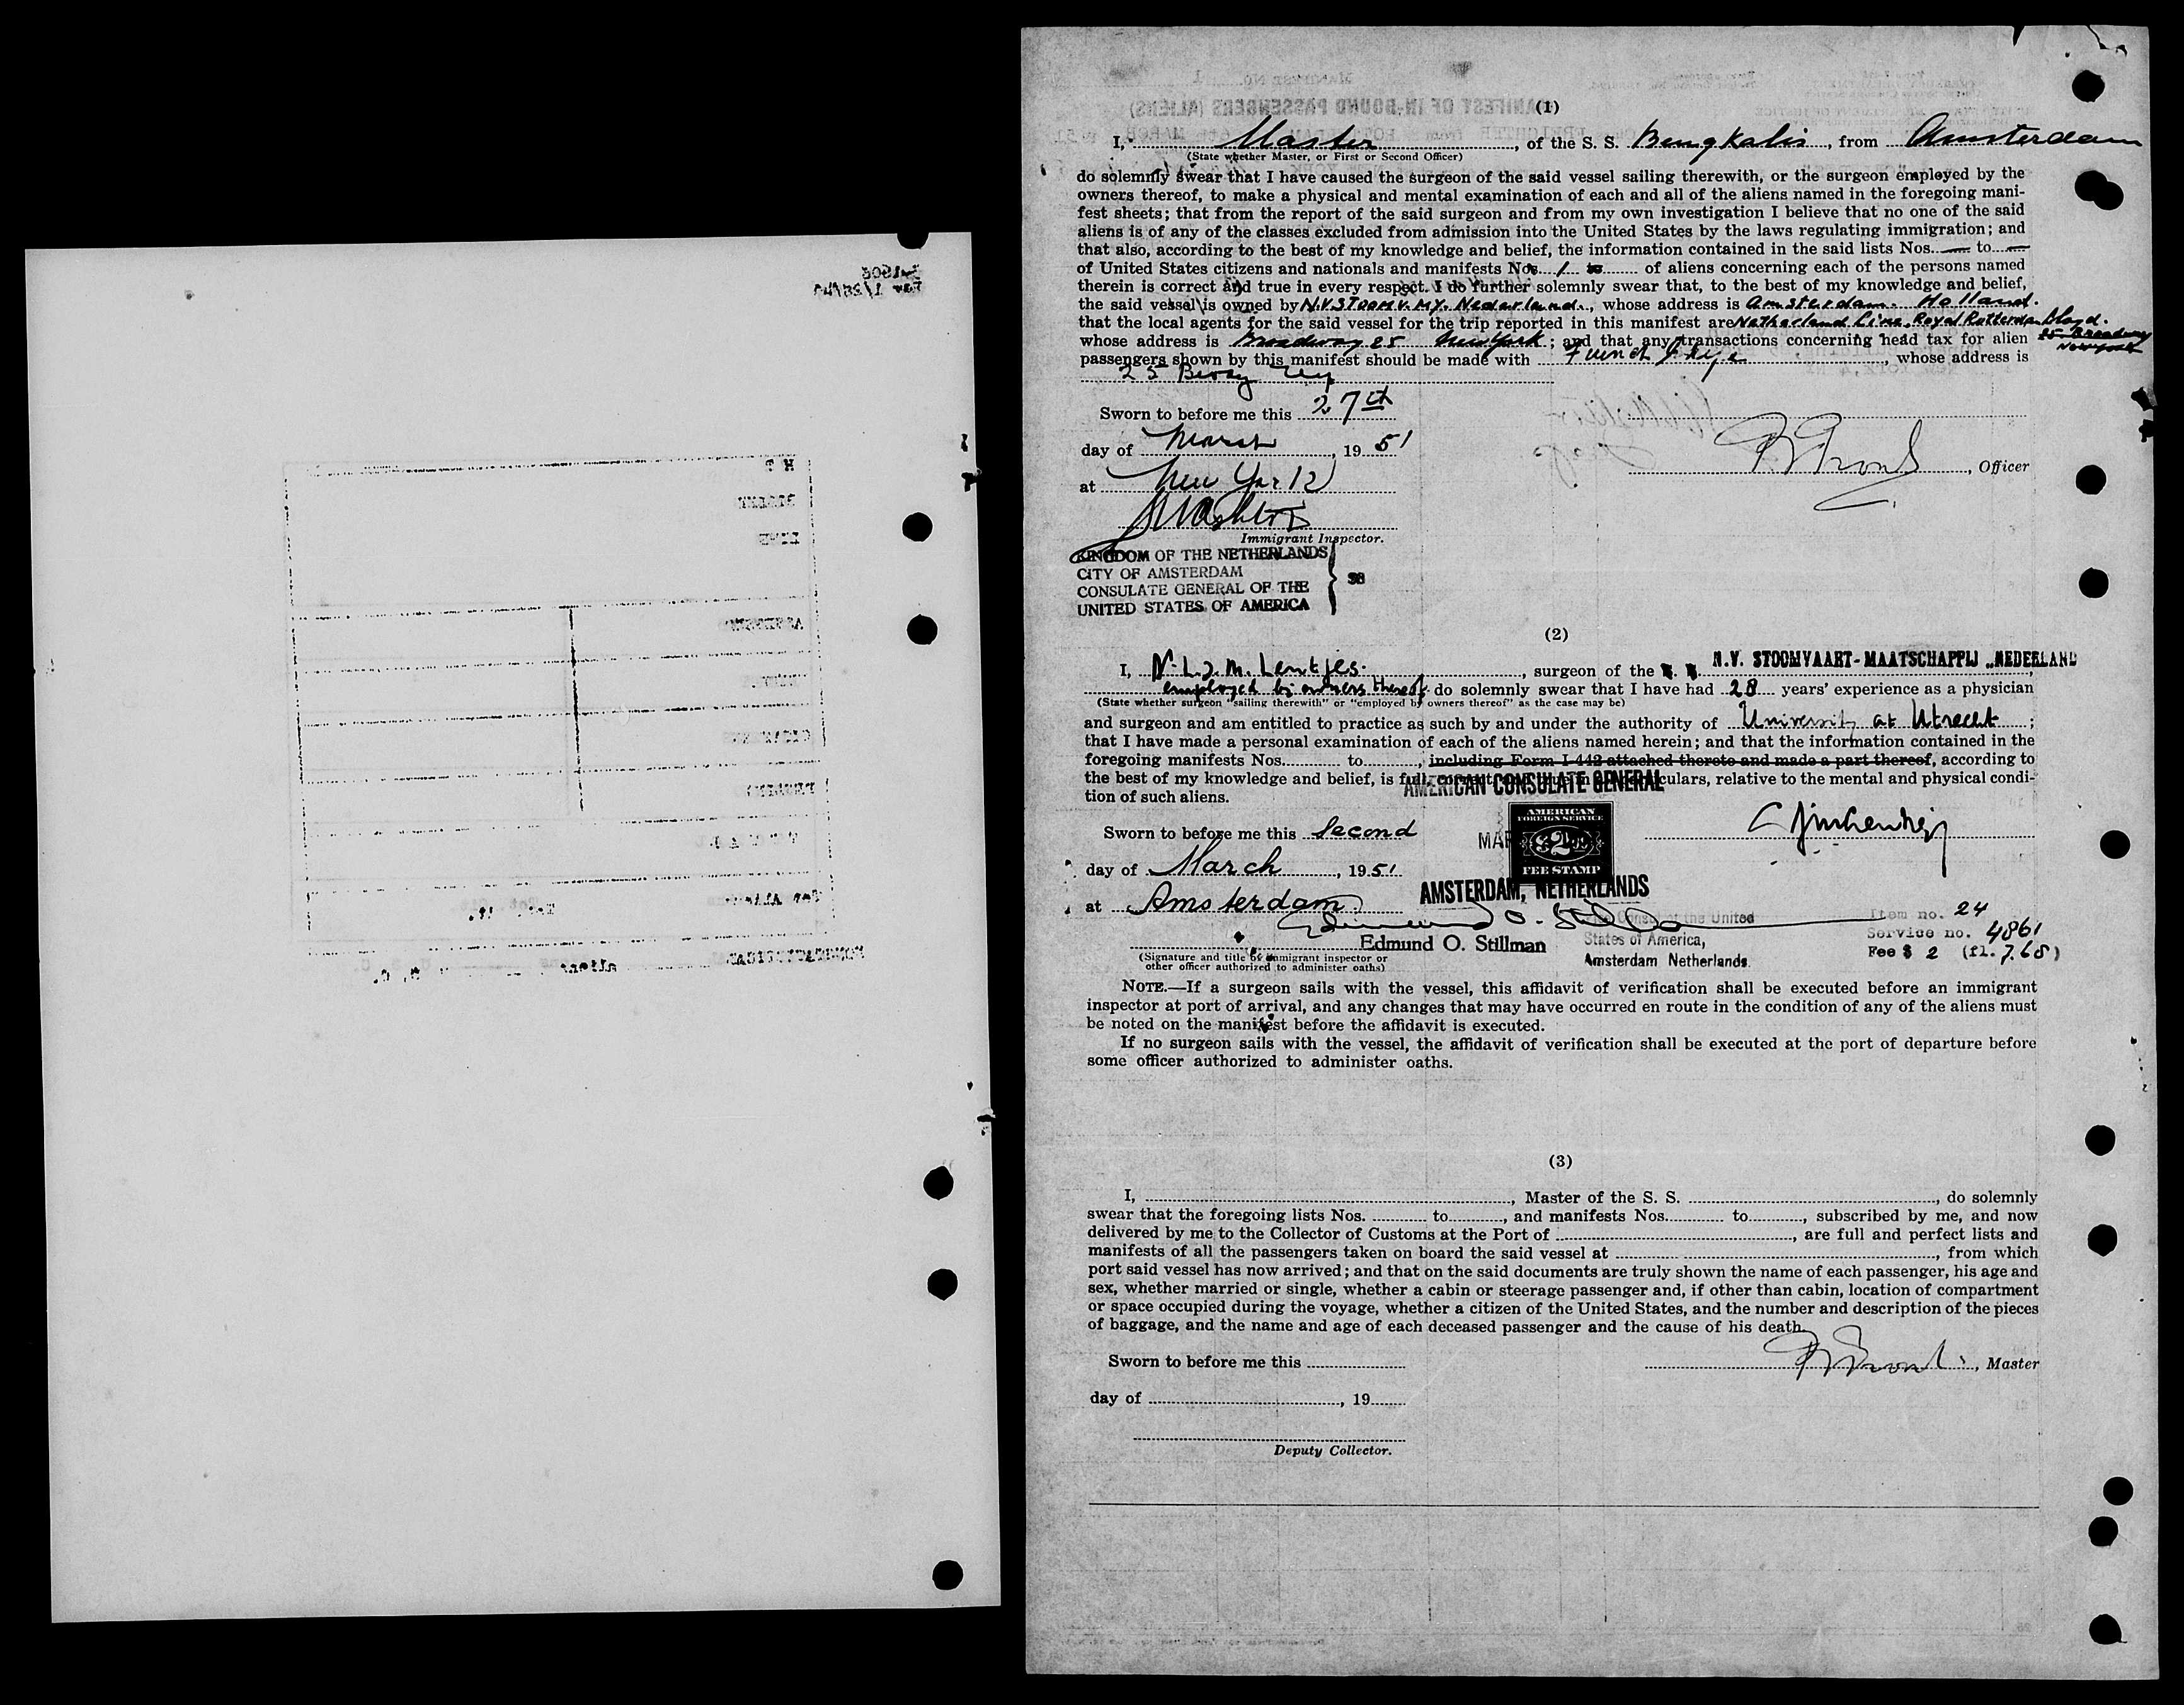 (1)
I, Master, of the S. S. Bengkalis, from Amsterdam
(State whether Master, or First or Second Officer)
do solemnly swear that I have caused the surgeon of the said vessel sailing therewith, or the surgeon employed by the
owners thereof, to make a physical and mental examination of each and all of the aliens named in the foregoing mani-
fest sheets; that from the report of the said surgeon and from my own investigation I believe that no one of the said
aliens is of any of the classes excluded from admission into the United States by the laws regulating immigration; and
that also, according to the best of my knowledge and belief, the information contained in the said lists Nos. — to —
of United States citizens and nationals and manifests Nos. 1 to of aliens concerning each of the persons named
therein is correct and true in every respect. I do further solemnly swear that, to the best of my knowledge and belief,
the said vessel is owned by N.V. STOOMV. MY. Nederland., whose address is Amsterdam. Holland.
that the local agents for the said vessel for the trip reported in this manifest are Netherland Line, Royal Rotterdam Lloyd.
25 Broadway
New York
whose address is Broadway 25 New York; and that any transactions concerning head tax for alien
passengers shown by this manifest should be made with Funch, whose address is
25
Sworn to before me this 27th
day of March, 1951
at New York
Officer
Immigrant Inspector.
KINGDOM OF THE NETHERLANDS
CITY OF AMSTERDAM
CONSULATE GENERAL OF THE
UNITED STATES OF AMERICA
} SS
(2)
I, L.J.M. Lentjes., surgeon of the N.V. STOOMVAART-MAATSCHAPPIJ „NEDERLAND
employed by owners thereof do solemnly swear that I have had 28 years' experience as a physician
(State whether surgeon "sailing therewith" or "employed by owners thereof" as the case may be)
and surgeon and am entitled to practice as such by and under the authority of University at Utrecht;
that I have made a personal examination of each of the aliens named herein; and that the information contained in the
foregoing manifests Nos. to, including Form I-442 attached thereto and made a part thereof, according to
the best of my knowledge and belief, is full, correct, relative to the mental and physical condi-
tion of such aliens.
AMERICAN CONSULATE GENERAL
Sworn to before me this Second
MAR
AMERICAN
FOREIGN SERVICE
$2.00
FEE STAMP
day of March, 1951
AMSTERDAM, NETHERLANDS
at Amsterdam
Edmund O. Stillman
Consul of the United
States of America,
Amsterdam Netherlands.
Item no. 24
Service no. 4861
Fee $ 2 (fl. 7.68)
(Signature and title of immigrant inspector or
other officer authorized to administer oaths)
NOTE.—If a surgeon sails with the vessel, this affidavit of verification shall be executed before an immigrant
inspector at port of arrival, and any changes that may have occurred en route in the condition of any of the aliens must
be noted on the manifest before the affidavit is executed.
If no surgeon sails with the vessel, the affidavit of verification shall be executed at the port of departure before
some officer authorized to administer oaths.
(3)
I, , Master of the S. S. , do solemnly
swear that the foregoing lists Nos. to, and manifests Nos. to, subscribed by me, and now
delivered by me to the Collector of Customs at the Port of , are full and perfect lists and
manifests of all the passengers taken on board the said vessel at , from which
port said vessel has now arrived; and that on the said documents are truly shown the name of each passenger, his age and
sex, whether married or single, whether a cabin or steerage passenger and, if other than cabin, location of compartment
or space occupied during the voyage, whether a citizen of the United States, and the number and description of the pieces
of baggage, and the name and age of each deceased passenger and the cause of his death.
Sworn to before me this
, Master
day of , 19
Deputy Collector.